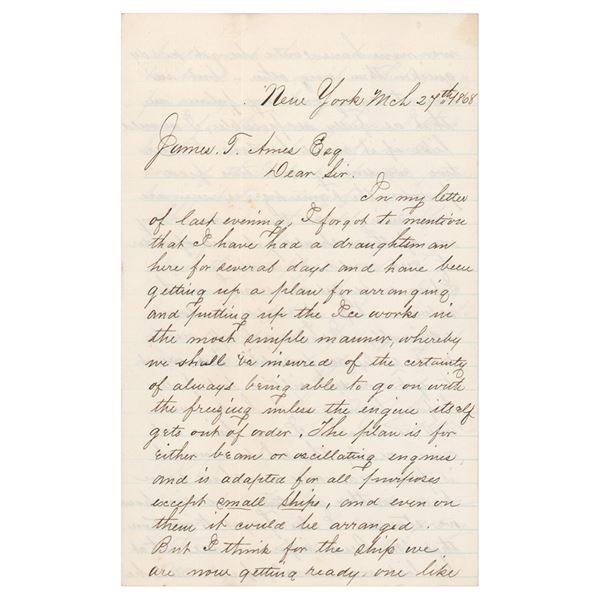 New York Mch 27th 1868
James. T. Ames Esq
Dear Sir.
In my letter
of last evening, I forgot to mention
that I have had a draughtsman
here for several days and have been
getting up a plan for arranging
and putting up the Ice works in
the most simple manner, whereby
we shall be insured of the certainty
of always being able to go on with
the freezing unless the engine itself
gets out of order. The plan is for
either beam or oscillating engines
and is adapted for all purposes
except small ships, and even on
them it could be arranged.
But I think for the ship we
are now getting ready one like